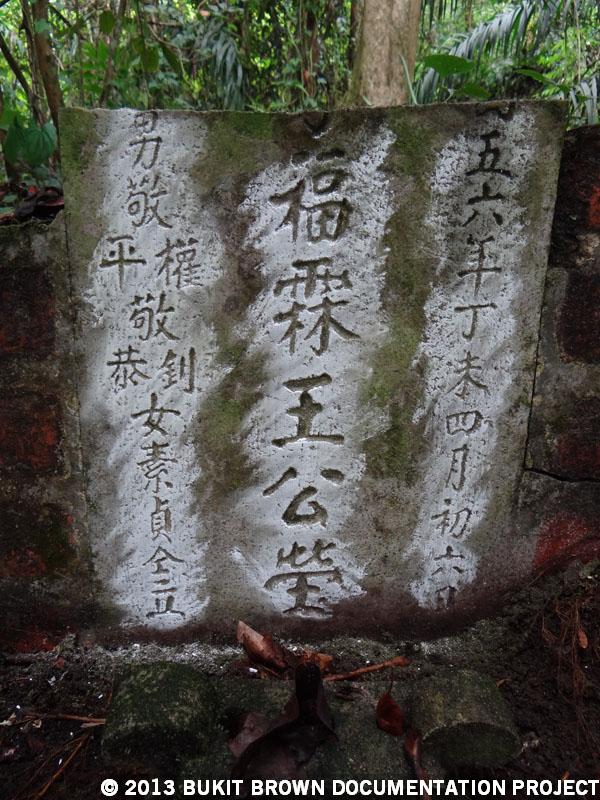 五六年丁未四月初六日
福霖王公塋
男敬權平敬釗恭女素貞仝立
© 2013 BUKIT BROWN DOCUMENTATION PROJECT